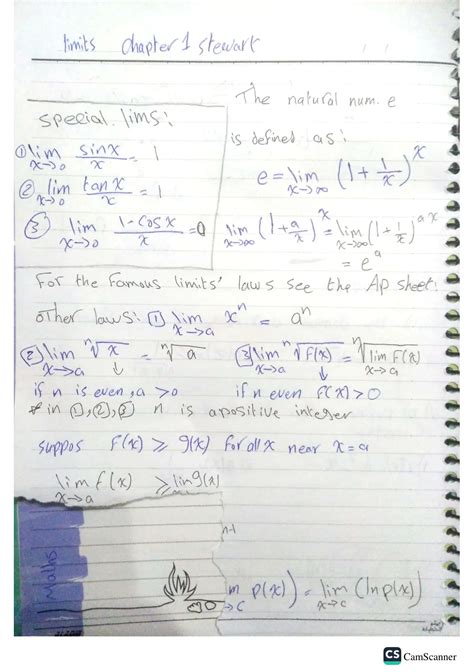 limits chapter 1 stewart
special lims:
① lim x→0 sinx/x = 1
② lim x→0 tanx/x = 1
③ lim x→0 1-cosx/x = 0
The natural num. e
is defined as:
e = lim x→∞ (1 + 1/x)^x
lim x→∞ (1 + a/x)^x = lim x→∞ (1 + 1/x)^ax
= e^a
For the Famous limits' laws see the Ap sheet.
other laws: ① lim x→a x^n = a^n
② lim x→a ⁿ√x = ⁿ√a ③ lim x→a ⁿ√F(x) = ⁿ√lim x→a F(x)
↓ ↓
if n is even, a >0 if n even F(x)>0
* in ①,②,③ n is a positive integer
suppos F(x) ⩾ g(x) for all x near x=a
lim x→a f(x) ⩾ lim g(x)
n-1
Maths
m →c p(x)) = lim x→c (ln p(x))
CS CamScanner